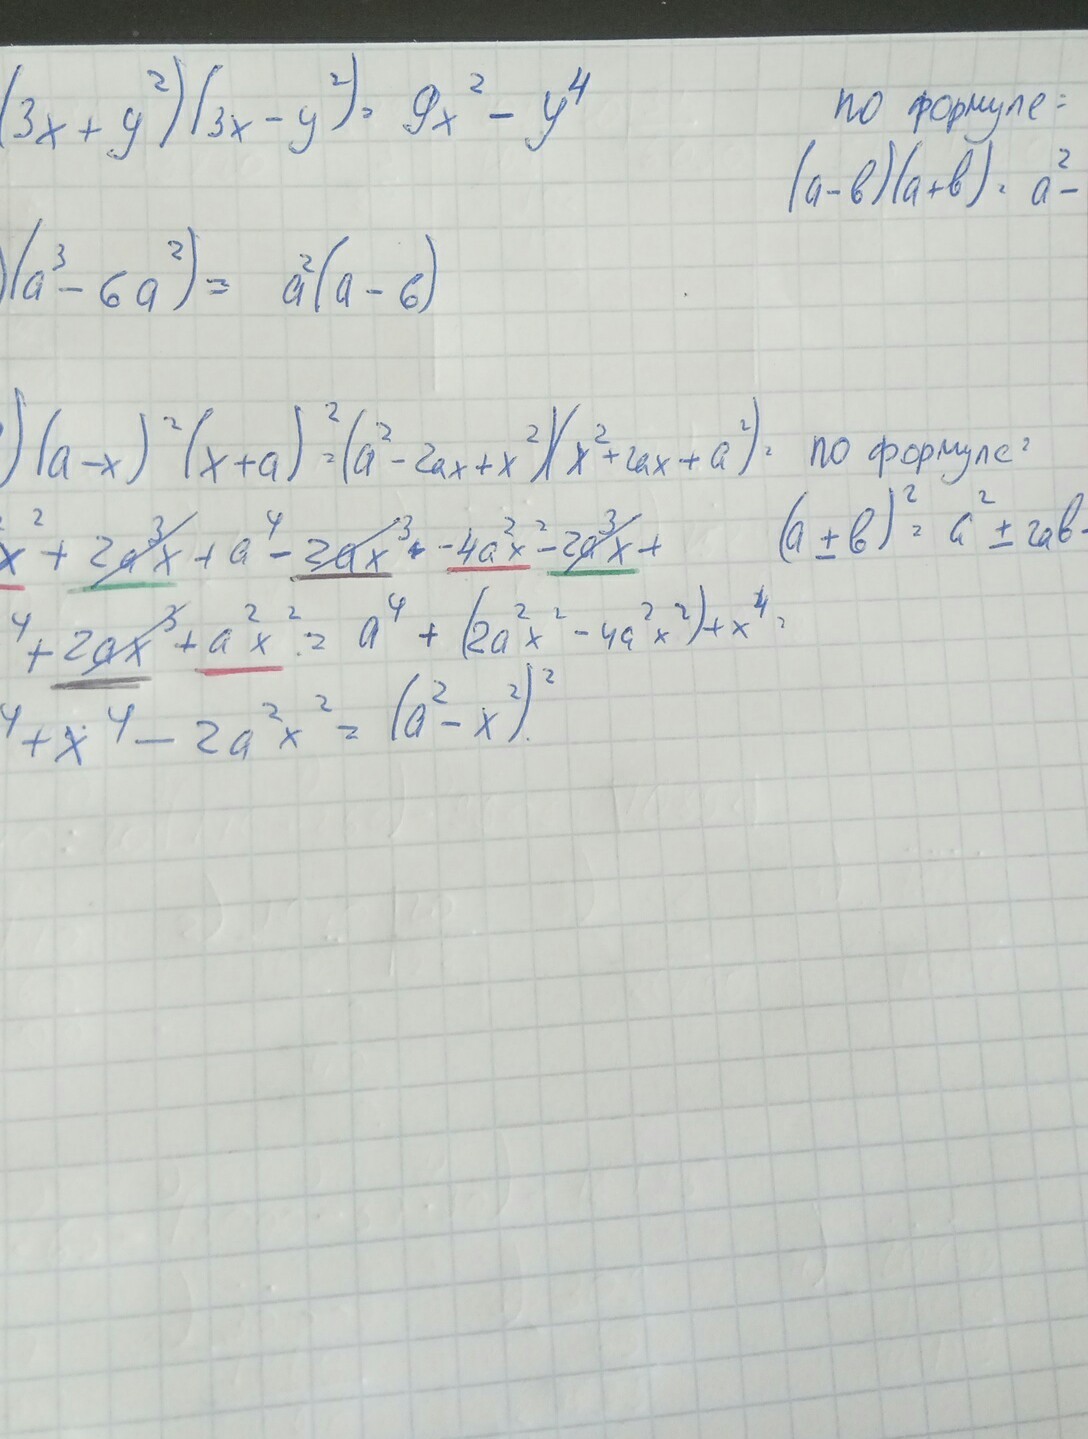 (3x+y²)(3x-y²)= 9x² - y⁴ по формуле:
(a-b)(a+b)= a²-
)(a³-6a²)= a²(a-6)
)(a-x)²(x+a)²=(a²-2ax+x²)(x²+2ax+a²)= по формуле:
x²+2a³x+a⁴-2ax³-4a²x²-2a³x+ (a±b)²=a²±2ab-
⁴+2ax³+a²x²= a⁴+(2a²x²-4a²x²)+x⁴=
⁴+x⁴-2a²x²=(a²-x²)².